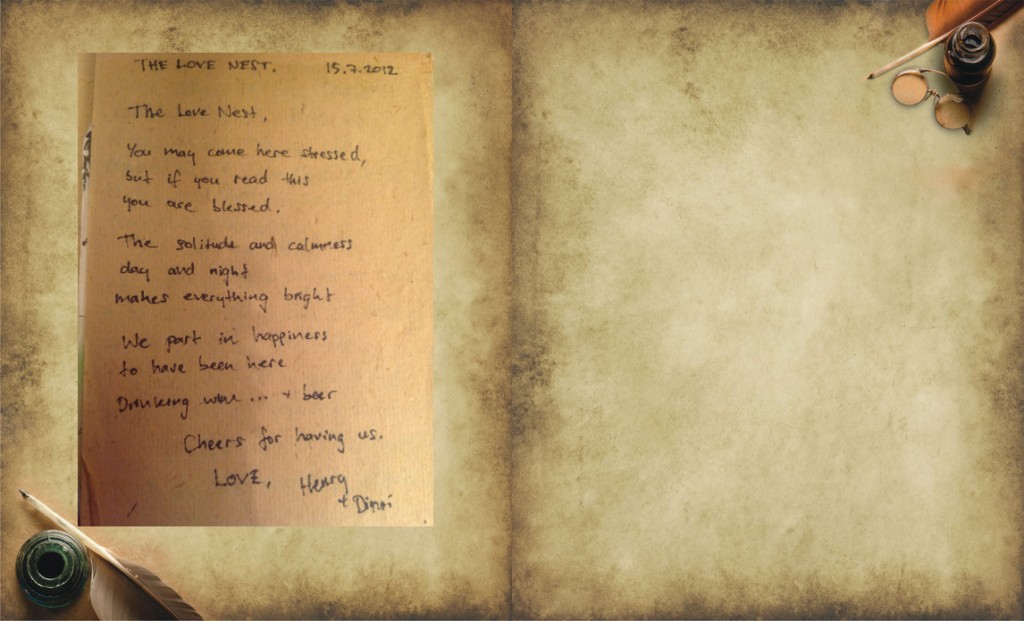 THE LOVE NEST. 15.7.2012
The Love Nest,
You may come here stressed,
but if you read this
you are blessed.
The solitude and calmness
day and night
makes everything bright
We part in happiness
to have been here
Drinking wine ... + beer
Cheers for having us.
LOVE, Henry
+